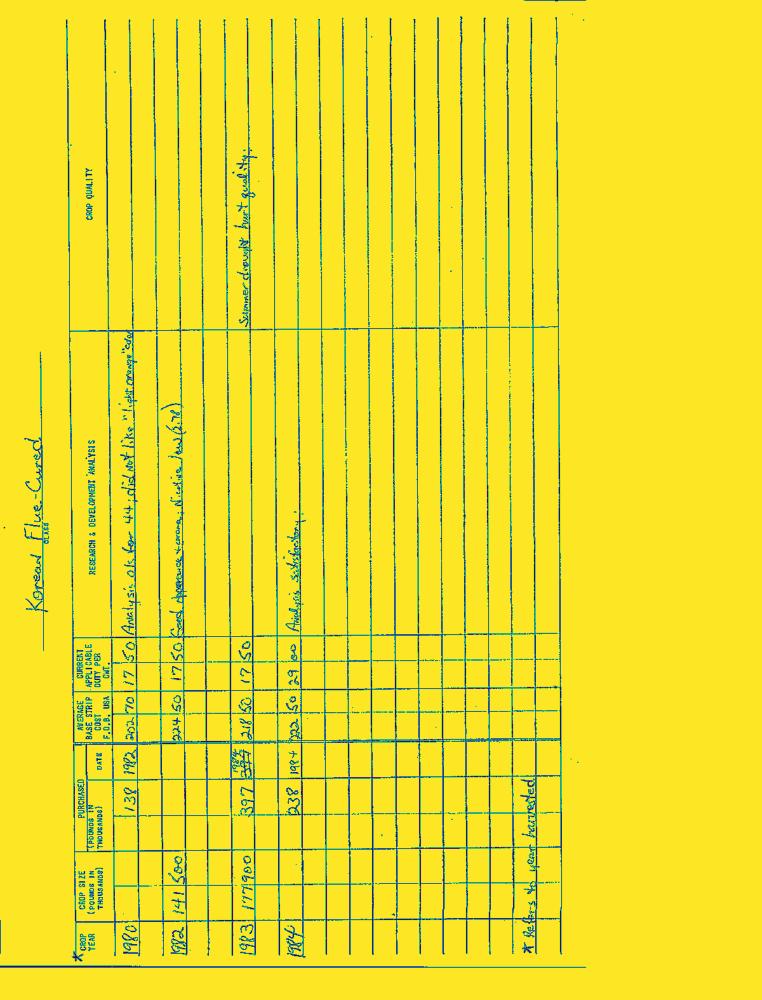 Korean Flue-Cured
CLASS
* CROP YEAR
CROP SIZE (POUNDS IN THOUSANDS)
PURCHASED (POUNDS IN THOUSANDS)
DATE
AVERAGE BASE STRIP COST F.O.B. USA
CURRENT APPLICABLE DUTY PER CWT.
RESEARCH & DEVELOPMENT ANALYSIS
CROP QUALITY
1980 138 1982 202 70 17 50 Analysis ok for 44; did not like "light orange" color
1982 141 500 224 50 17 50 Good appearance + aroma; Nicotine low (2.78)
1984
1983 177 900 397 218 50 17 50 Summer drought hurt quality;
1984 238 1984 222 50 29 00 Analysis satisfactory;
* Refers to year harvested